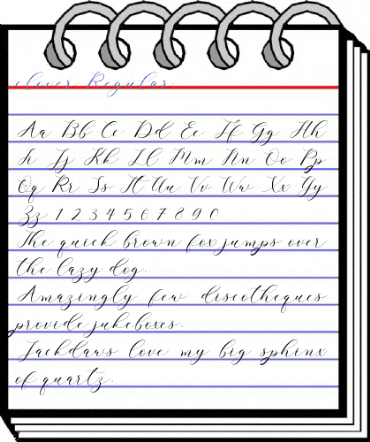 clever Regular
Aa Bb Cc Dd Ee Ff Gg Hh
Ii Jj Kk Ll Mm Nn Oo Pp
Qq Rr Ss Tt Uu Vv Ww Xx Yy
Zz 1 2 3 4 5 6 7 8 9 0
The quick brown fox jumps over
the lazy dog.
Amazingly few discotheques
provide jukeboxes.
Jackdaws love my big sphinx
of quartz.